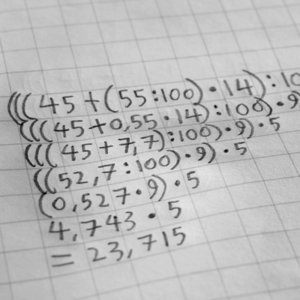 (((45+(55:100)·14):10
(((45+0,55·14):100)·9
(((45+7,7):100)·9)·5
((52,7:100)·9)·5
(0,527·9)·5
4,743·5
=23,715